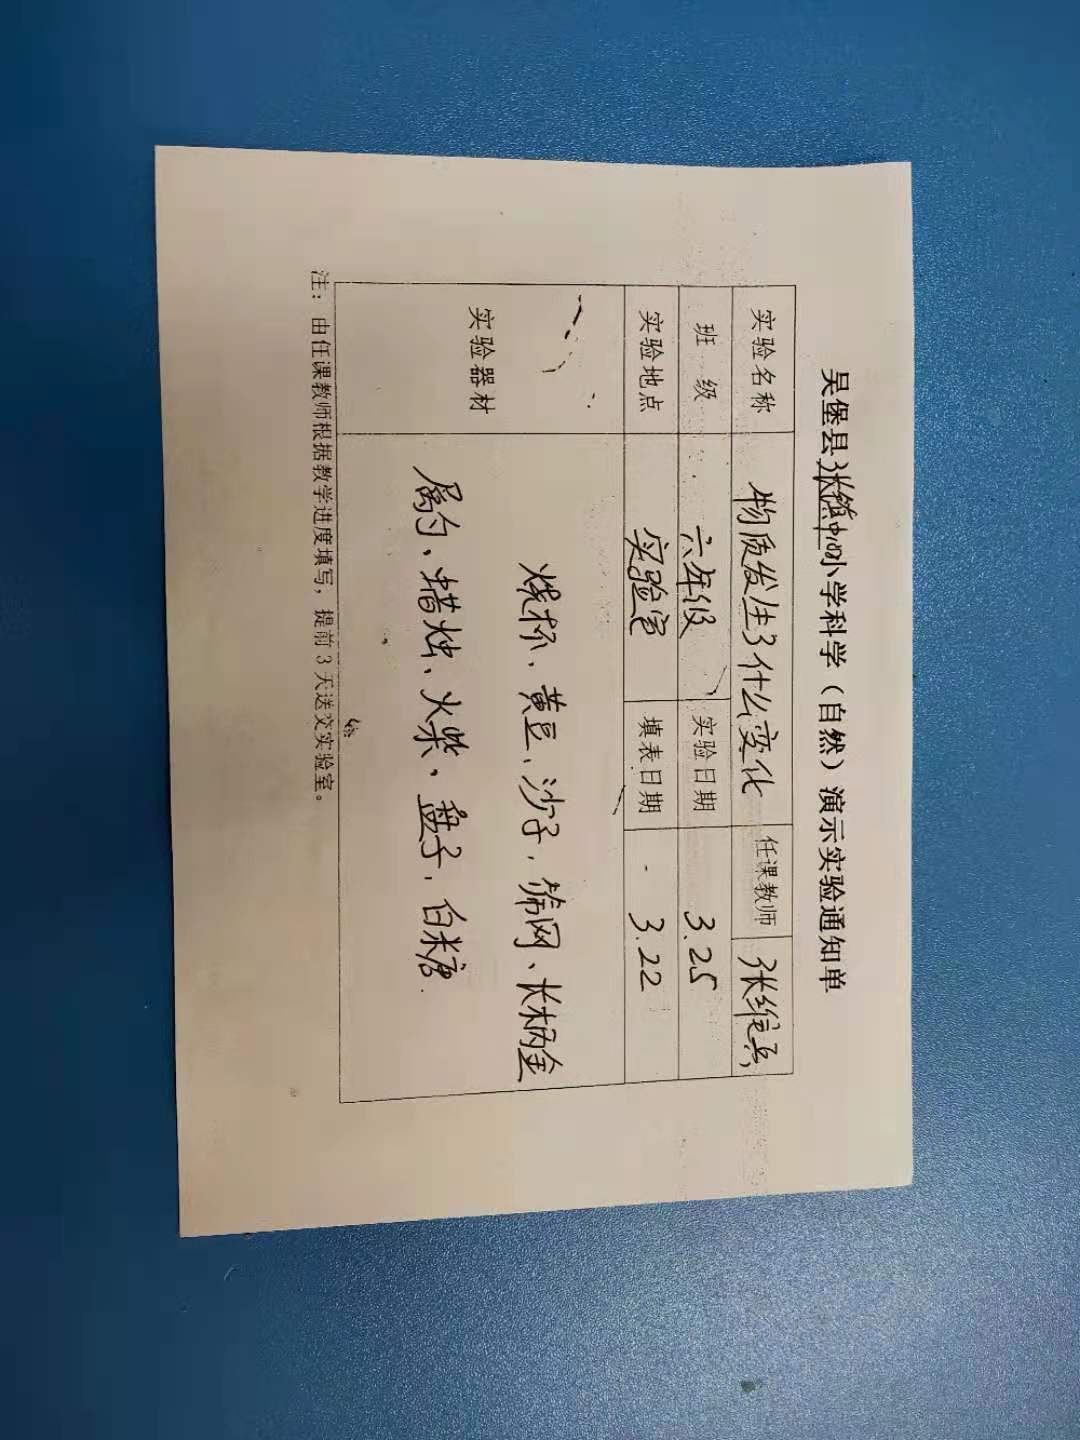 吴堡县张镇中心小学科学（自然）演示实验通知单
实验名称 物质发生了什么变化 任课教师 张维兵
班级 六年级 实验日期 3.25
实验地点 实验室 填表日期 3.22
实验器材
烧杯、黄豆、沙子、筛网、长柄金
属勺、蜡烛、火柴、盘子、白米唐
注：由任课教师根据教学进度填写，提前3天送交实验室。